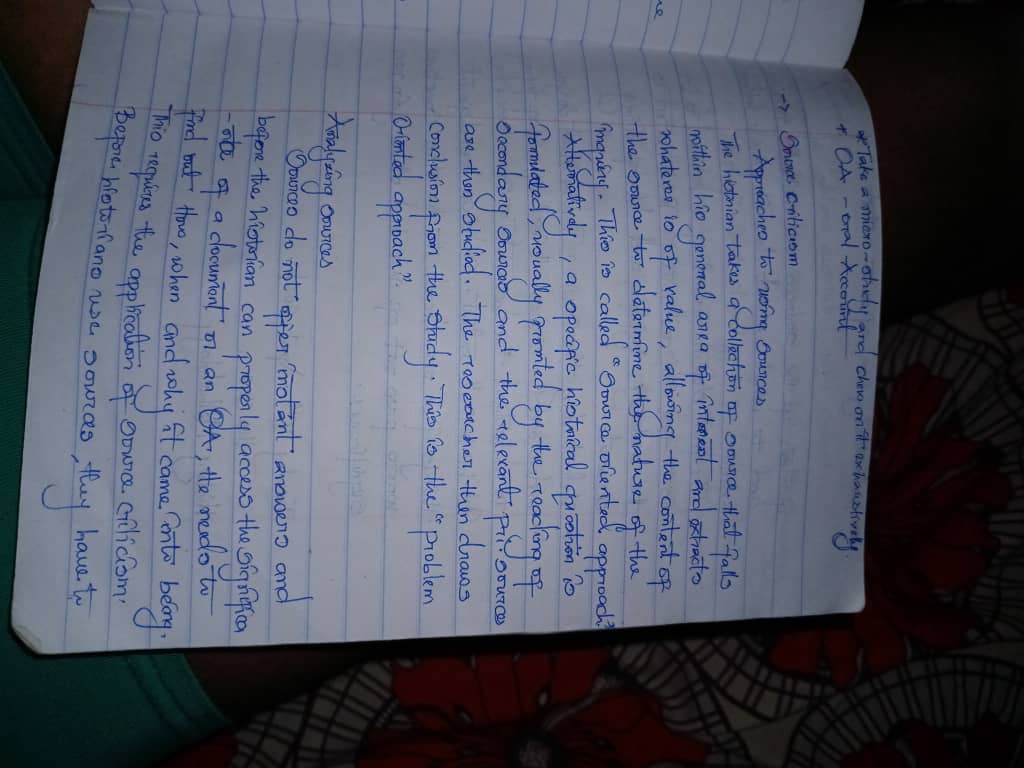 * Take a micro-study and chew on it exhaustively.
* OA - oral Account
-> Source criticism
Approaches to using sources
The historian takes a collection of source that falls
within his general area of interest and extracts
whatever is of value, allowing the content of
the source to determine the nature of the
inquiry. This is called "source oriented approach".
Alternatively, a specific historical question is
formulated, usually promted by the reading of
Secondary sources and the relevant pri. sources
are then studied. The researcher then draws
Conclusion from the study. This is the "problem
Oriented approach".
Analyzing sources
Sources do not offer instant answers and
before the historian can properly access the significa
-nce of a document or an OA, He needs to
find out How, when and why it came into being.
This requires the application of source criticism.
Before historians use sources, they have to